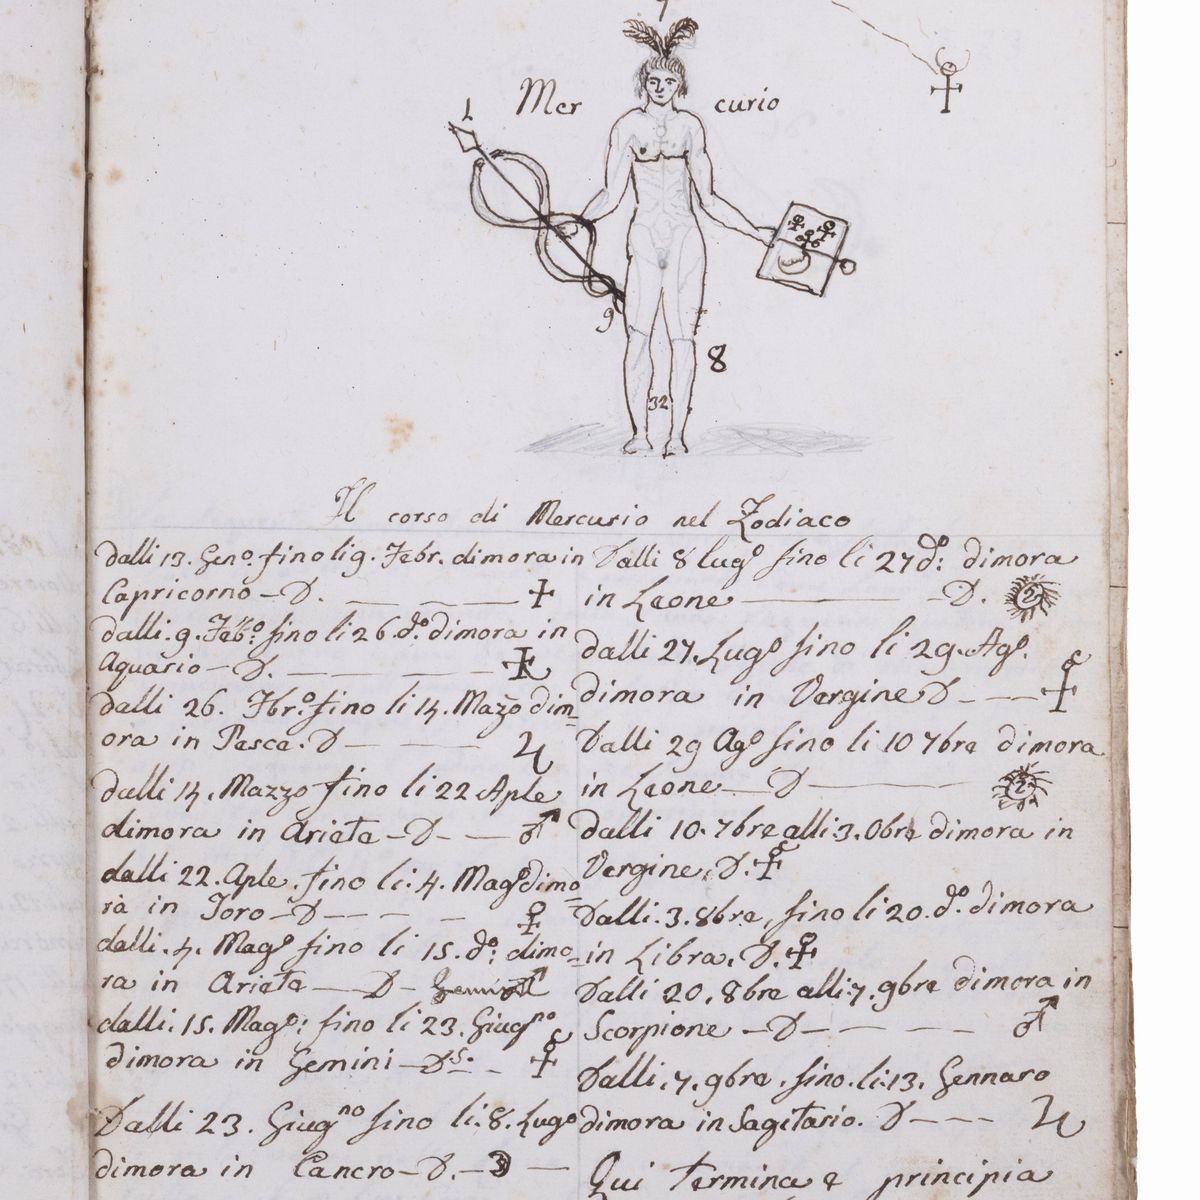 Mer curio
9
8
32
Il corso di Mercurio nel Zodiaco
dalli 13. Genº. fino li 9. Febr. dimora in
Capricorno – D.
dalli. 9. Febº. fino li 26. dº. dimora in
Aquario – D.
dalli 26. Fbrº fino li 14. Mazo dim=
ora in Pesce. D
dalli 14. Mazzo fino li 22 Aple
dimora in Ariete – D
dalli 22. Aple. fino li. 4. Magº dimo
ra in Toro – D
dalli. 4. Magº fino li 15. dº: dimo=
ra in Ariete – D –
dalli. 15. Magº: fino li 23. Giugno
dimora in Gemini – Ds.
Dalli 23. Giugno fino li. 8. Lugº
dimora in Cancro – D. –
Dalli 8 lugº fino li 27 dº: dimora
in Leone – D.
dalli 27. Lugº fino li 29. Agº.
dimora in Vergine D
Dalli 29 Agº fino li 10 7bre dimora
in Leone – D
dalli 10. 7bre alli 3. 0bre dimora in
Vergine. D.
Dalli. 3. 8bre, fino li 20. dº. dimora
in Libra. D.
Dalli 20. 8bre alli. 7. 9bre dimora in
Scorpione – D –
Dalli. 7. 9bre. fino. li. 13. Gennaro
dimora in Sagitario. D
Qui termina e principia